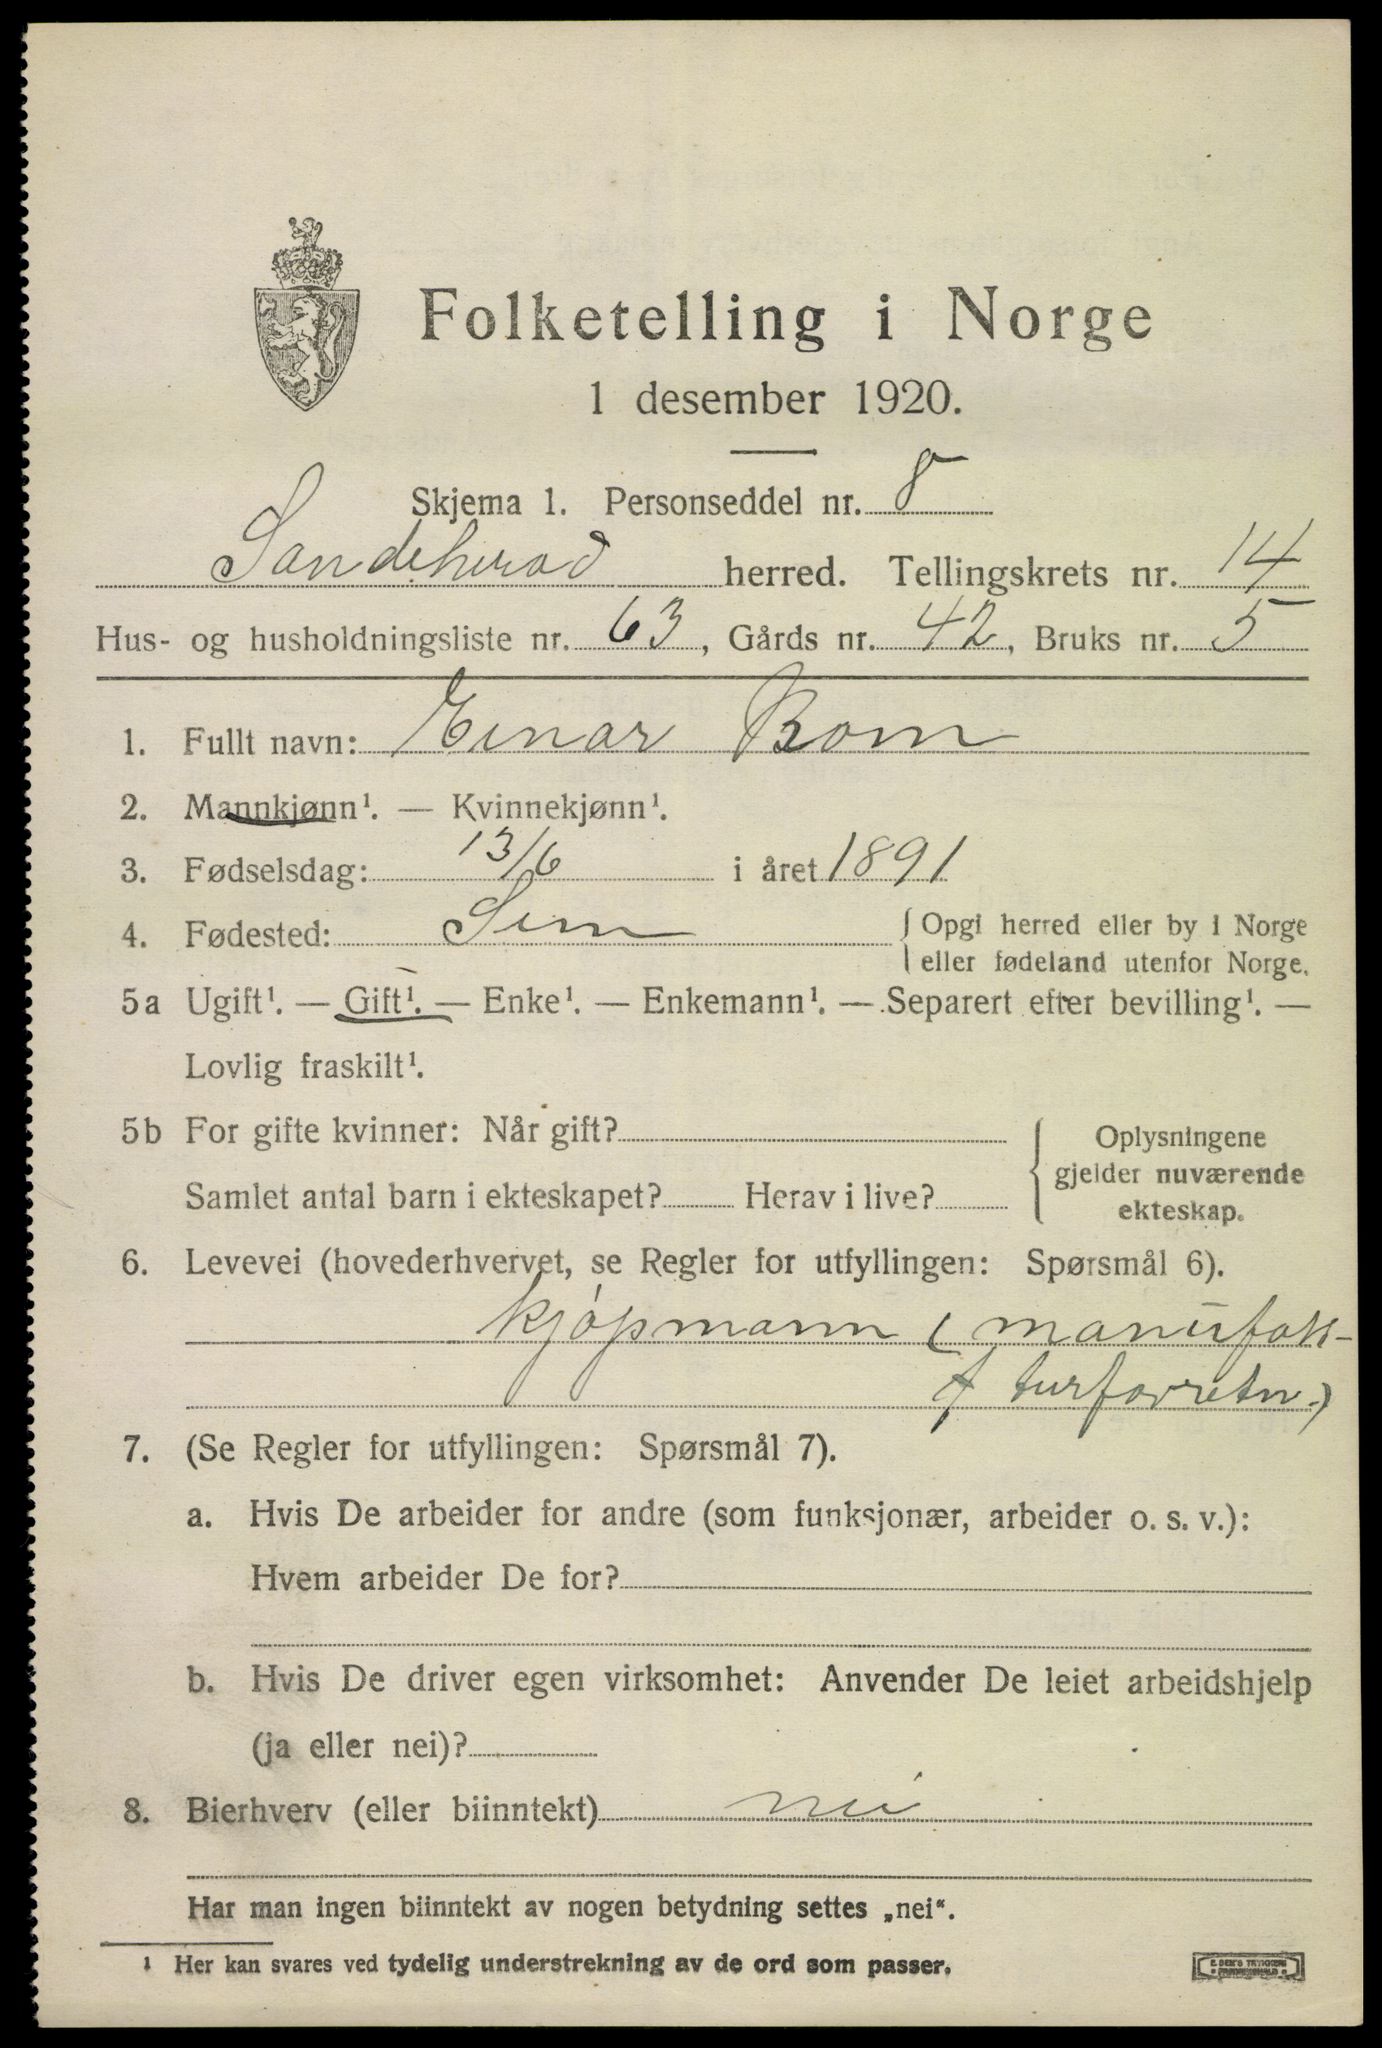 Folketelling i Norge
1 desember 1920.
Skjema 1. Personseddel nr. 8
Sandeherad herred. Tellingskrets nr. 14
Hus- og husholdningsliste nr. 63, Gårds nr. 42, Bruks nr. 5
1. Fullt navn: Einar Bom
2. Mannkjønn¹. — Kvinnekjønn¹.
3. Fødselsdag: 13/6 i året 1891
4. Fødested: Sem { Opgi herred eller by i Norge
eller fødeland utenfor Norge.
5a Ugift¹. — Gift¹. — Enke¹. — Enkemann¹. — Separert efter bevilling¹. —
Lovlig fraskilt¹.
5b For gifte kvinner: Når gift?
Samlet antal barn i ekteskapet? Herav i live?
{ Oplysningene
gjelder nuværende
ekteskap.
6. Levevei (hovederhvervet, se Regler for utfyllingen: Spørsmål 6).
kjøpmann (manufak-
turforretn.)
7. (Se Regler for utfyllingen: Spørsmål 7).
a. Hvis De arbeider for andre (som funksjonær, arbeider o. s. v.):
Hvem arbeider De for?
b. Hvis De driver egen virksomhet: Anvender De leiet arbeidshjelp
(ja eller nei)?
8. Bierhverv (eller biinntekt) nei
Har man ingen biinntekt av nogen betydning settes „nei“.
¹ Her kan svares ved tydelig understrekning av de ord som passer.